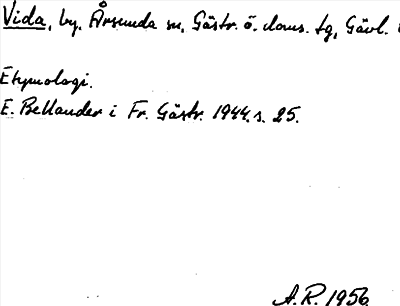 Vida, by. Årsunda sn, Gästr. ö. doms. tg, Gävl.
Etymologi.
E. Bellander i Fr. Gästr. 1944. s. 25.
A.R. 1956